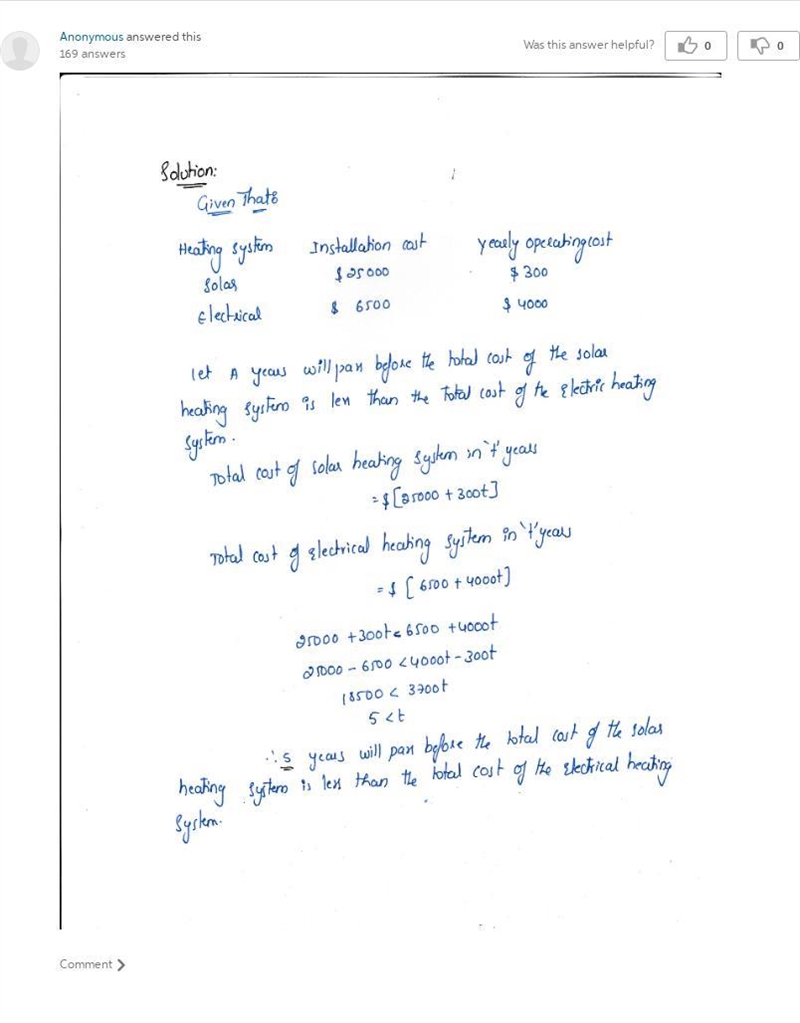 Anonymous answered this
169 answers
Was this answer helpful? 0 0
Solution:
Given That:
Heating System Installation cost yearly operating cost
Solar $25000 $300
Electrical $ 6500 $ 4000
let A years will pass before the total cost of the solar
heating system is less than the total cost of the Electric heating
System.
Total cost of solar heating system in 't' years
= $[25000 + 300t]
Total cost of electrical heating system in 't' years
= $ [6500 + 4000t]
25000 + 300t < 6500 + 4000t
25000 - 6500 < 4000t - 300t
18500 < 3700t
5 < t
∴ 5 years will pass before the total cost of the solar
heating system is less than the total cost of the electrical heating
System.
Comment